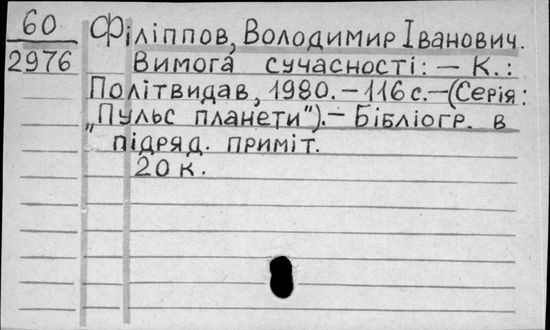 60
2976
Філіппов, Володимир Іванович.
Вимога сучасності: — К.:
Політвидав, 1980. — 116 с. — (Серія:
„Пульс планети"). — Бібліогр. в
підряд. приміт.
20 к.